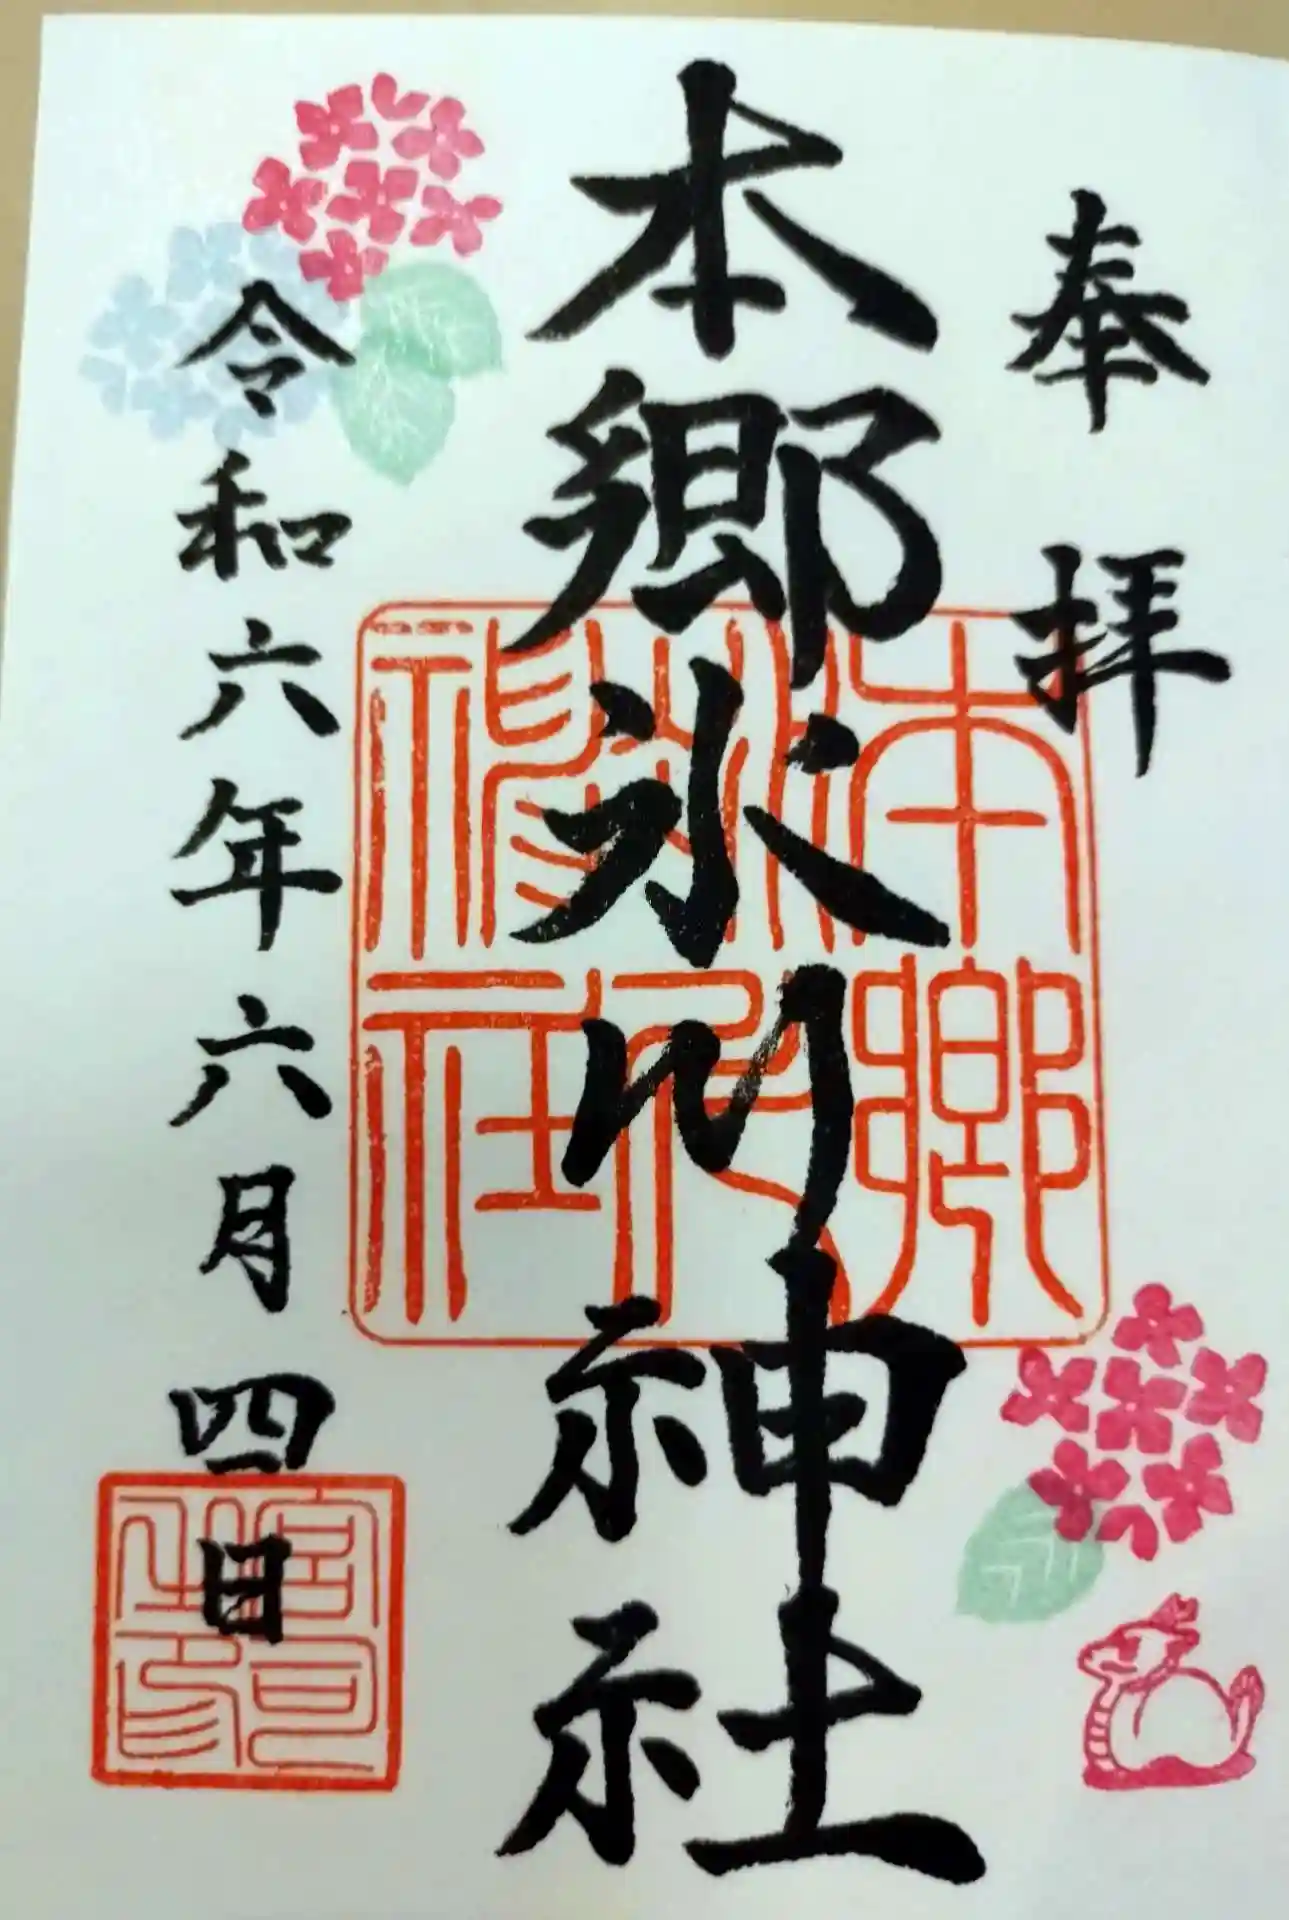 奉拝
本郷氷川神社
令和六年六月四日
本郷
氷川
神社